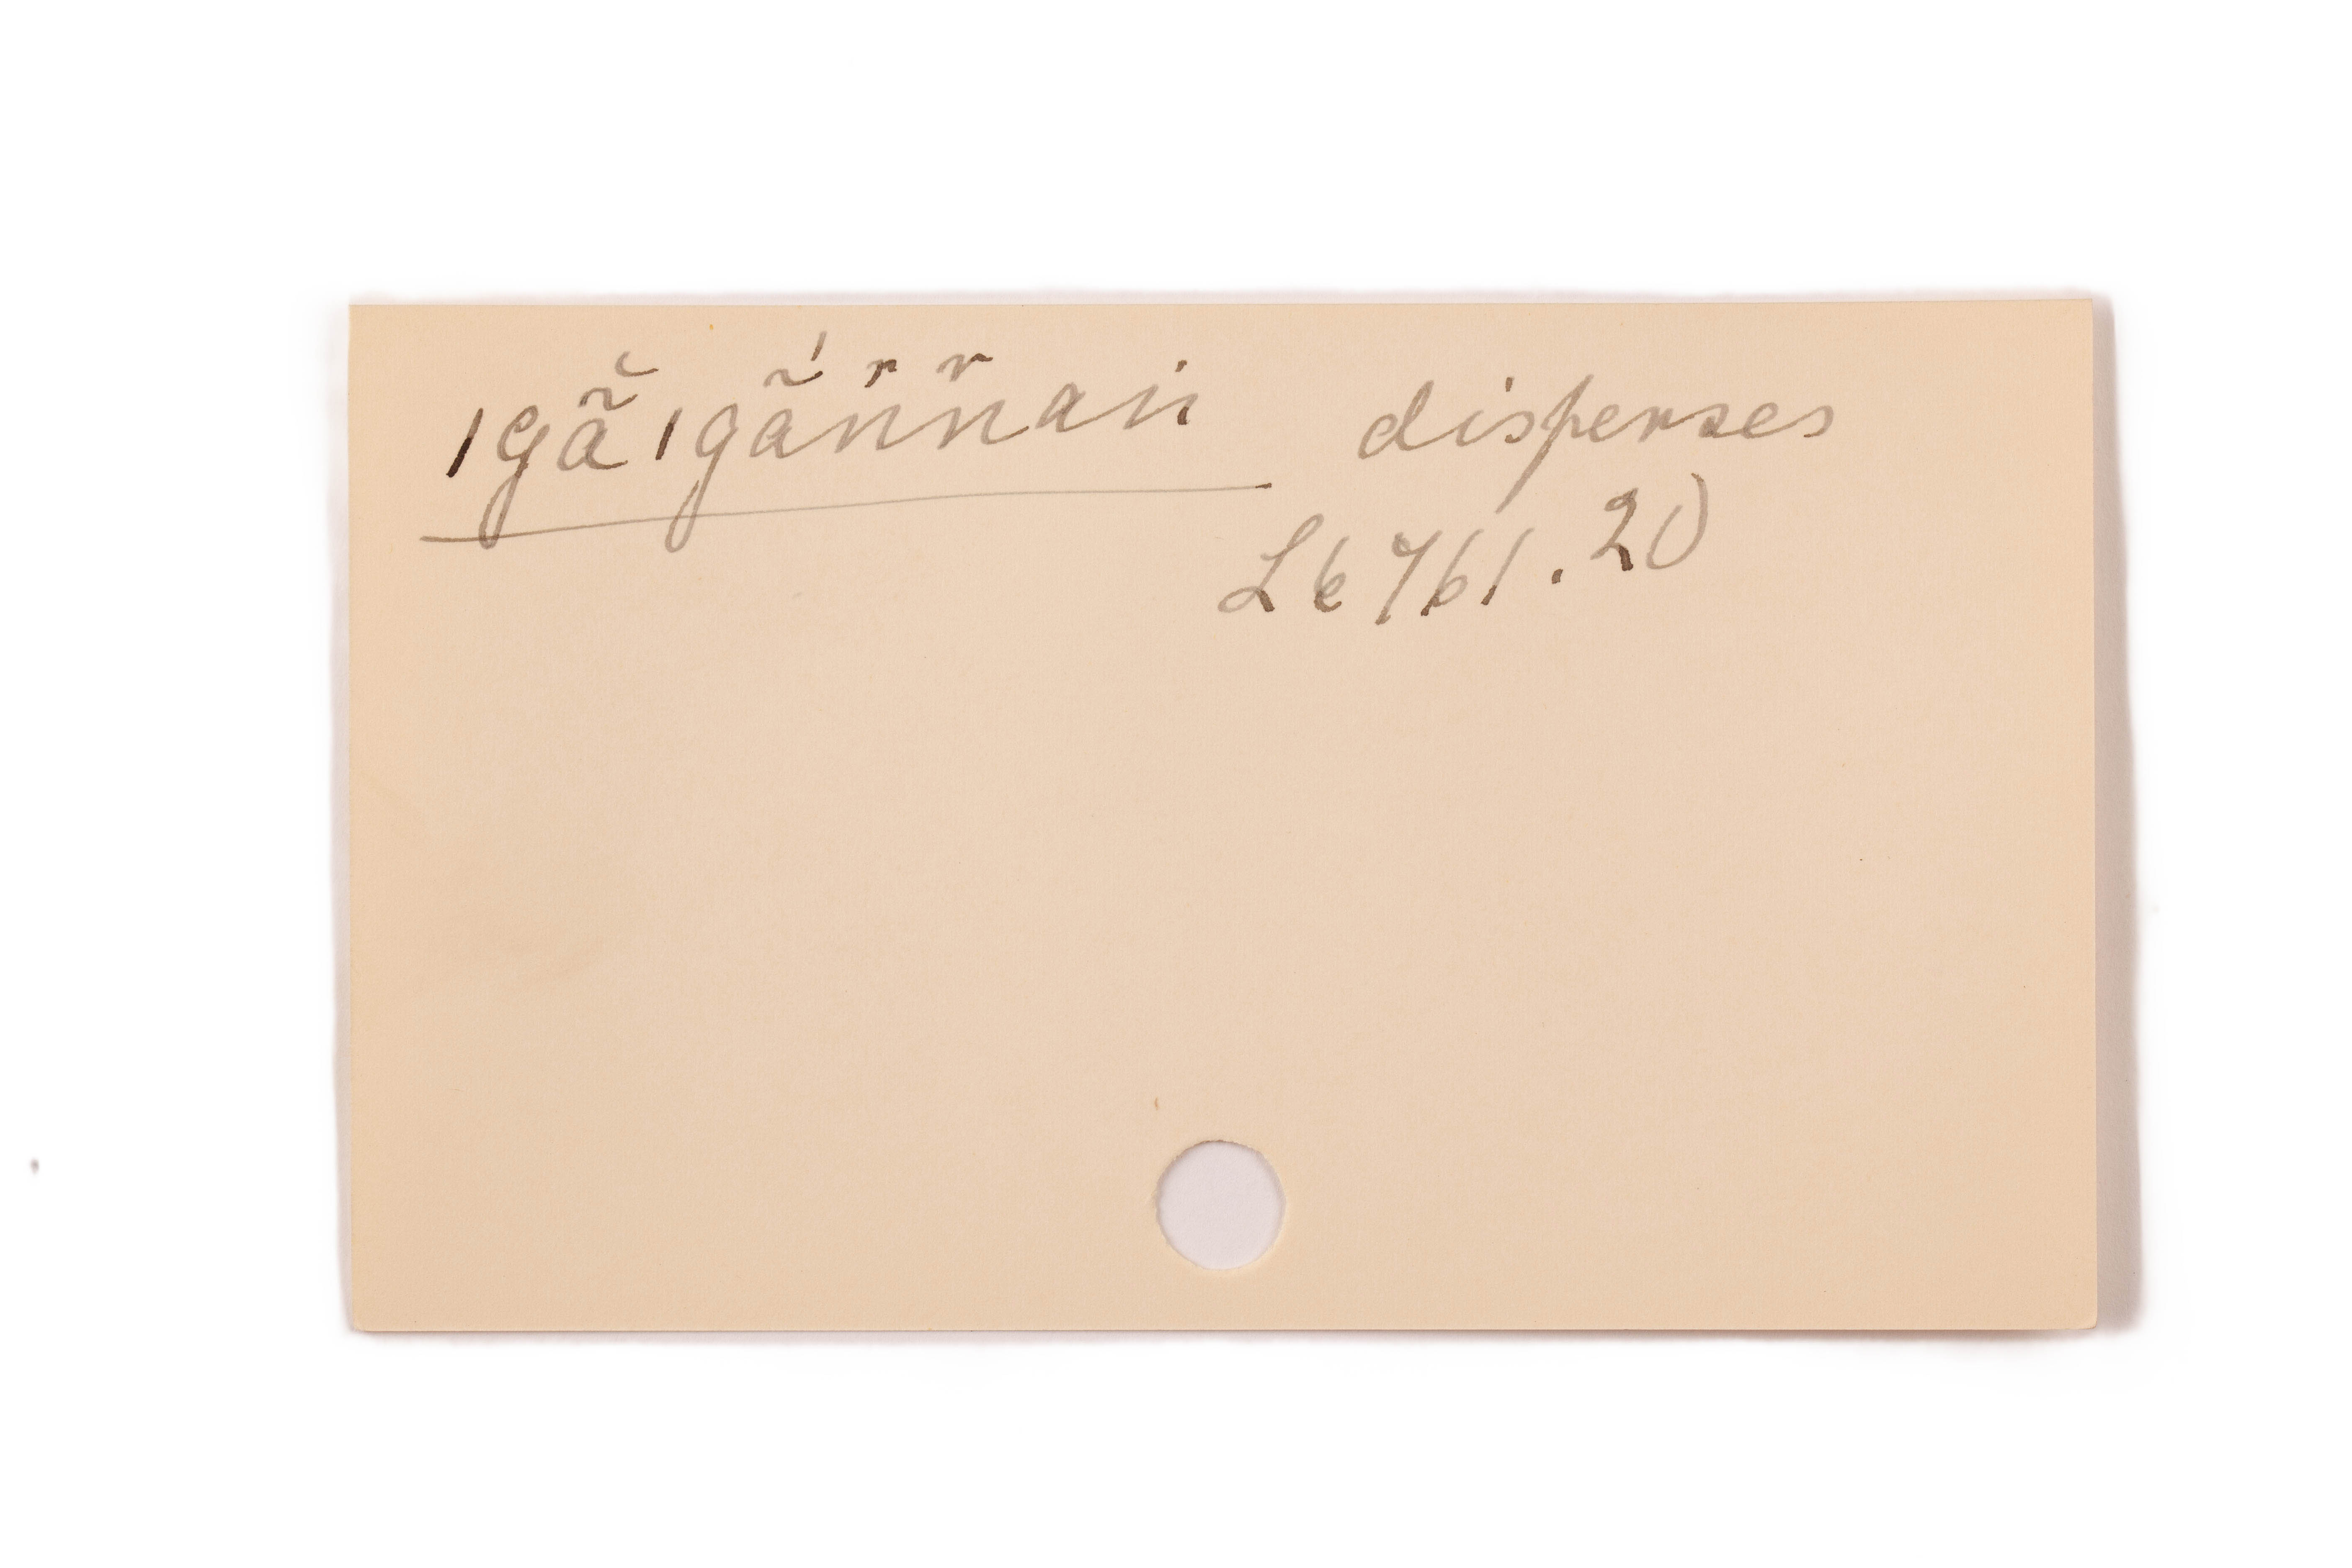 ıgã̆ıgã́n̆n̆an disperses
L6761.20